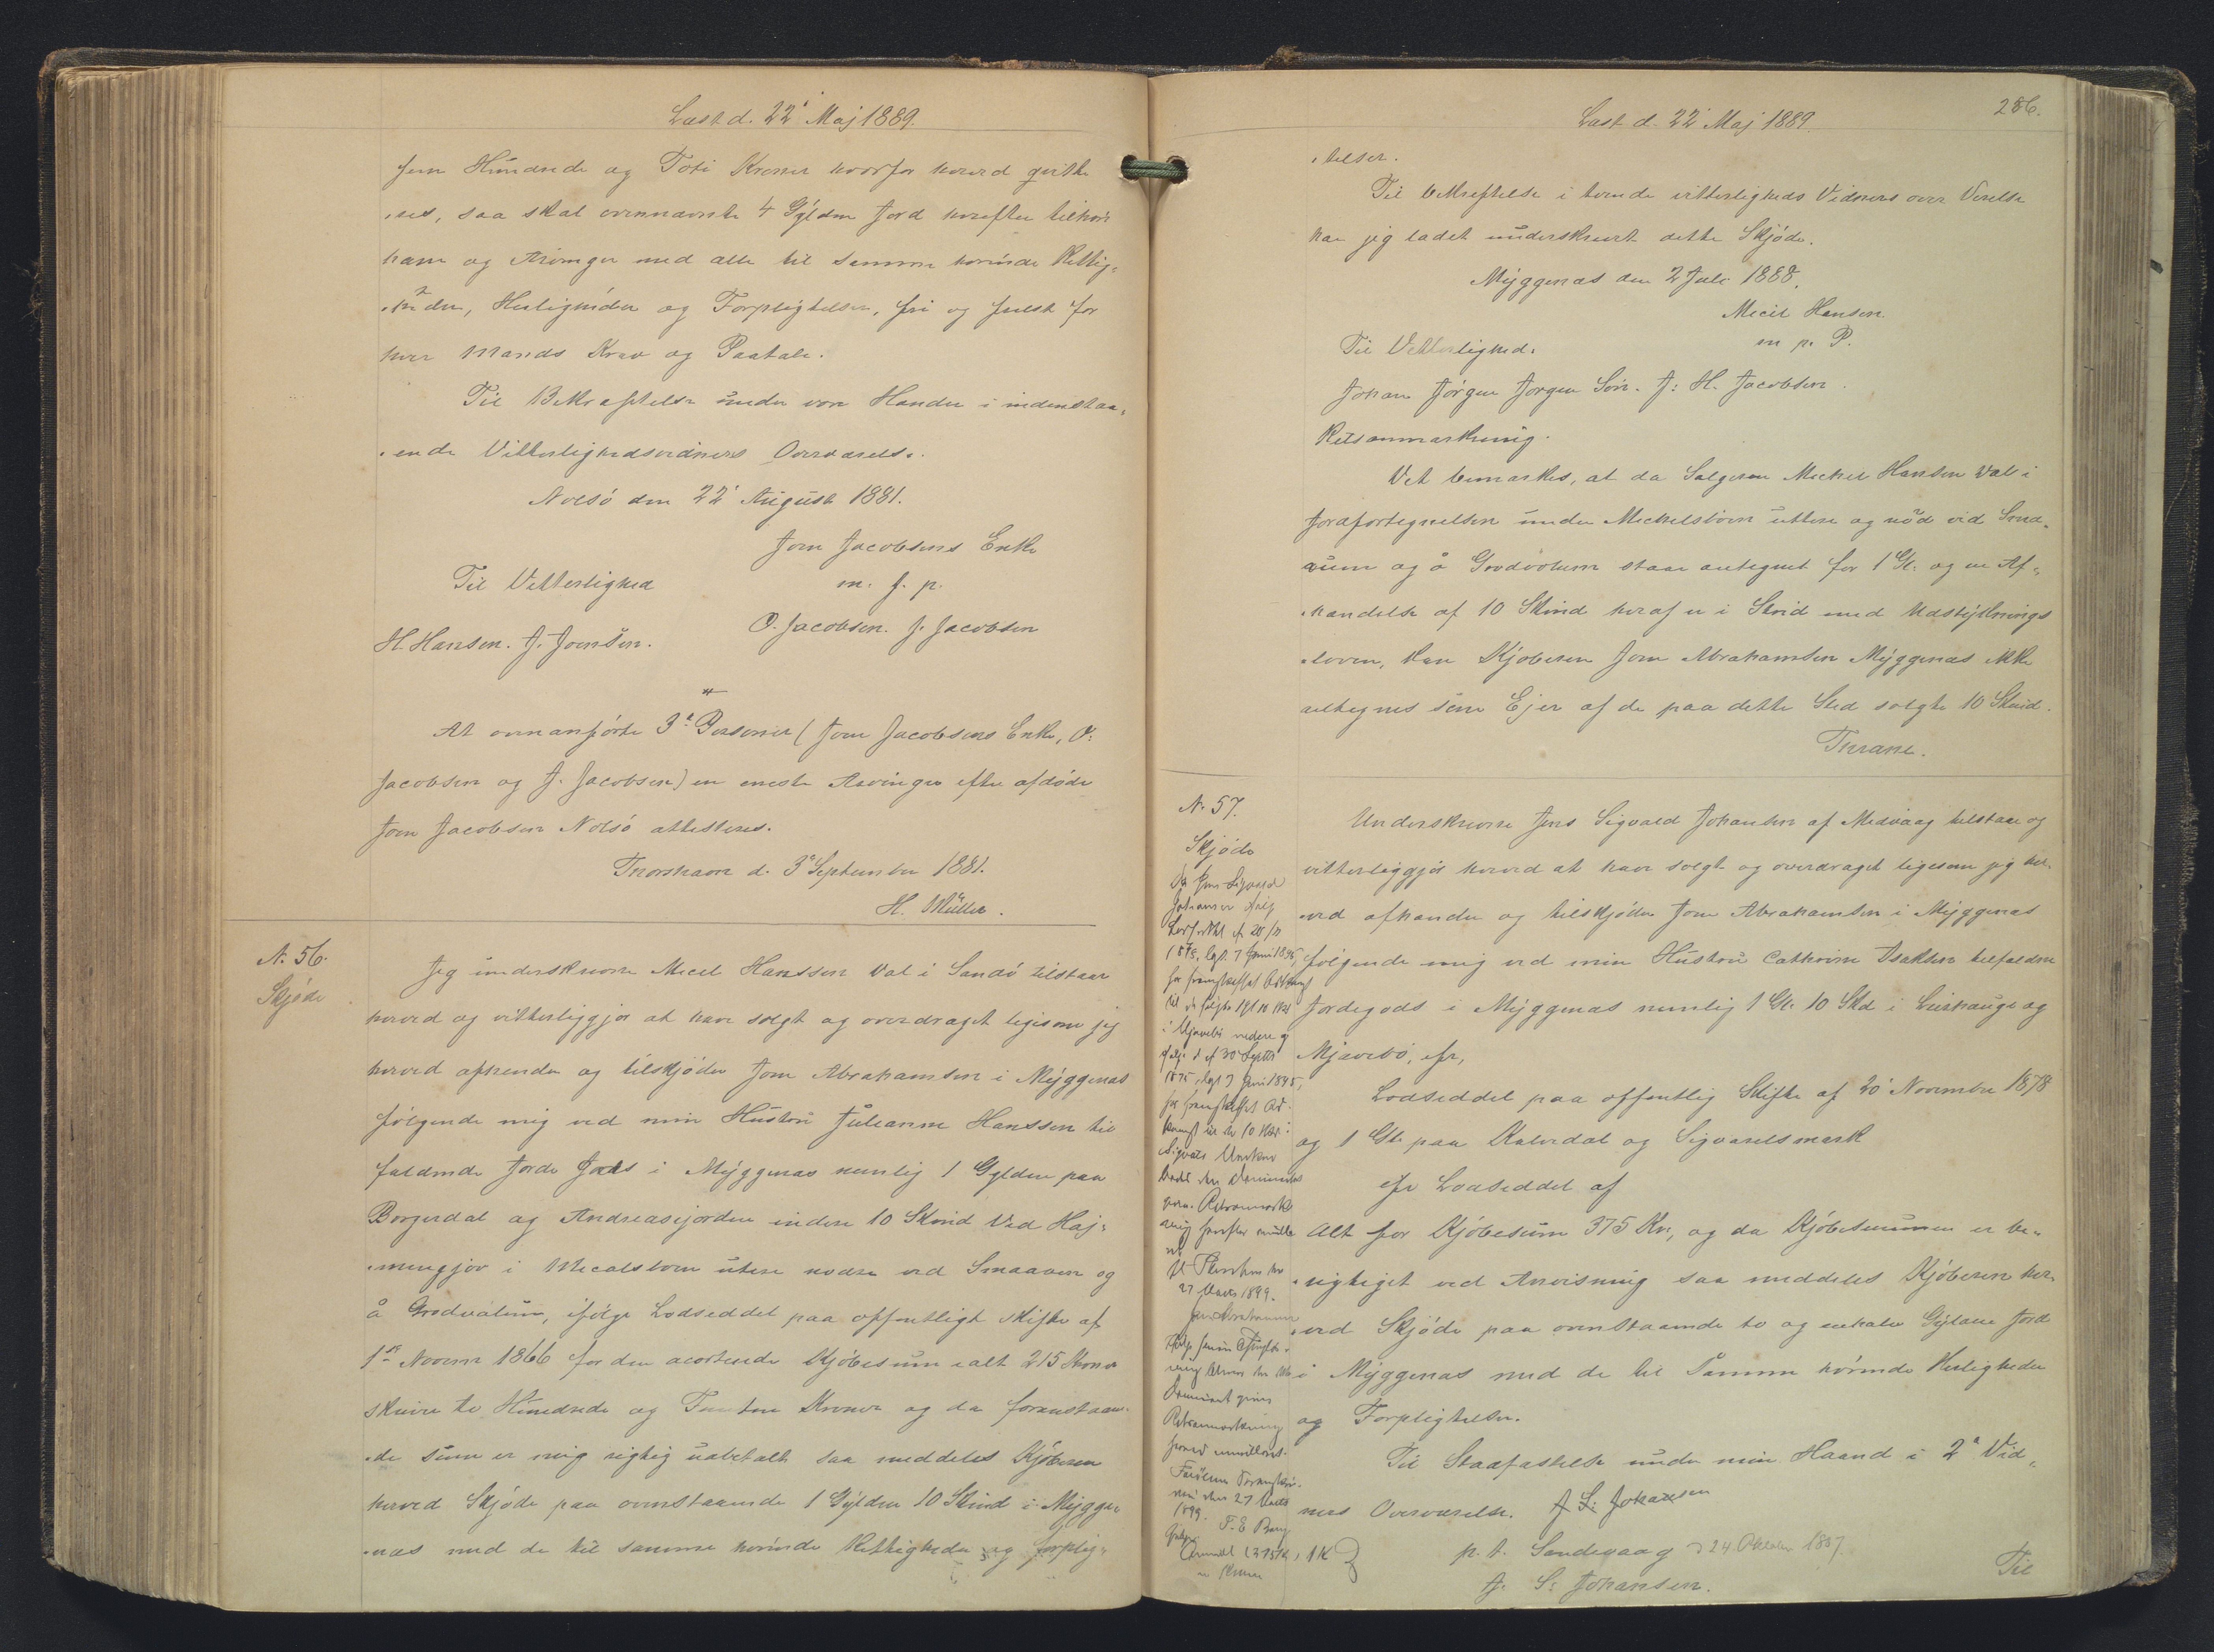 Læst d. 22' Maj 1889.
fem Hundrede og Toti Kroner hvorfor herved qvitte
res, saa skal ovennævnte 4 Gylden Jord herefter tilhøre
ham og Arvinger med alle til samme hørende Rettig-
heder, Herligheder og Forpligtelser, fri og frelst for
hver Mands Krav og Paatale.
Til Bekræftelse under vore Hænder i indenstaa-
ende Vitterlighedsvidners Overværelse.
Nolsø den 22' August 1881.
Joen Jacobsens Enke
Til Vitterlighed
m. f. p.
H. Hansen. J. Joensen.
O. Jacobsen. J. Jacobsen
At ovenanførte 3e Personer (Joen Jacobsens Enke, O.
Jacobsen og J. Jacobsen) er eneste Arvinger efter afdøde
Joen Jacobsen Nolsø attesteres.
Thorshavn d. 3e September 1881.
H. Müller.
N. 56.
Skjøde
Jeg underskrevne Micel Hanssen Val i Sandø tilstaar
herved og vitterliggjør at have solgt og overdraget ligesom jeg
herved afhender og tilskjøder Joen Abrahamsen i Myggenæs
følgende mig ved min Hustru Julianne Hanssen til
faldende Jorde Gods i Myggenæs nemlig 1 Gylden paa
Borgerdal og Andreasejorden indere 10 Skind Ved Haj-
mengjov i Micalsborn utere nødre ved Smaaven og
å Grodvalum, ifølge Lodseddel paa offentligt skifte af
1ste Novemr 1866 for den acorterede Kjøbesum ialt 215 Kroner
skrive to Hundrede og Femten Kroner og da foranstaaen-
de Sum er mig rigtig udbetalt saa meddeles Kjøberen
herved Skjøde paa ovenstaaende 1 Gylden 10 Skind i Mygge-
næs med de til samme hørende Rettigheder og forplig-
Læst d. 22' Maj 1889.
286.
telser.
Til bekræftelse i tvende vitterligheds Vidners over Værelse
har jeg ladet underskrevet dette Skjøde.
Myggenæs den 2 Juli 1888.
Micel Hansen
m. p. P.
Til Vitterlighed:
Johan Jørgen Jørgen Søn. J: H. Jacobsen.
Retsanmærkning.
Det bemærkes, at da Sælgeren Michel Hansen Val i
Jordfortegnelsen under Michelsborn uttere og nød ved Smaa-
vum og å Grodvolum staar antegnet for 1 Gl. og en Af-
handelse af 10 Skind heraf er i Strid med Udstykknings
loven, kan Kjøberen Joen Abrahamsen Myggenæs ikke
antegnes som Ejer af de paa dette Sted solgte 10 Skind.
Thrane.
N. 57.
Skjøde
Da Jens Sigvald
Johansen ifølg
Lodseddel af 20/11
1878, lgt. 7 Juni 1895,
har fremskaffet Adkomst
til de solgte 1 Gl 10 Skd
i Mjavebø nedere og
ifølge af 30 Septbr
1875, lgt 7 Juni 1895,
har fremskaffet Ad-
komst til 10 Skd i
Sigvalds
Retsanmærk
ning
27 Marts 1899.
Retsanmærkning
herved annulleret.
Færøernes Sorenskri-
veri den 27 Marts
1899.
Underskrevne Jens Sigvald Johansen af Midvaag tilstaar og
vitterliggjør herved at have solgt og overdraget ligesom jeg her-
ved afhender og tilskjøder Joen Abrahamsen i Myggenæs
følgende mig ved min Hustru Cathrine Isaksen tilfaldne
Jordegods i Myggenæs nemlig 1 Gl. 10 Skd i Leirhauge og
Mjavebø, efr,
Lodseddel paa offentlig Skifte af 20' November 1878
og 1 Gl. paa Kalvedal og Sigvaldsmark
efr Lodseddel af
Alt for Kjøbesum 375 Kr., og da Kjøbesummen er be-
rigtiget ved Anvisning saa meddeles Kjøberen her-
ved Skjøde paa ovenstaaende to og enhalv Gylden Jord
i Myggenæs med de til Samme hørende Herligheder
og Forpligtelser.
Til Stadfæstelse under min Haand i 2e Vid-
ners Overværelse. J. S: Johansen
p. t. Sandevaag d 24 Oktober 1887.
J. S: Johansen.
Til